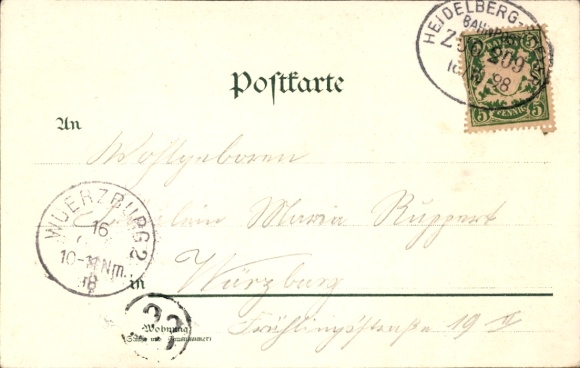 HEIDELBERG-
BAHNPOST
ZUG 209
98
5 5
PFENNIG
Postkarte
An
Wohlgeboren
Fräulein Maria Ruppert
WUERZBURG 2
16
10-11 Nm.
98
in Würzburg
33
Wohnung
(Straße und Hausnummer)
Frühlingsstraße 19 II